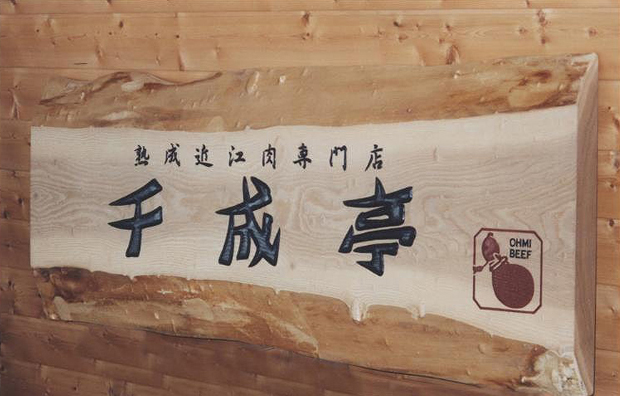 熟成近江肉専門店
千成亭
OHMI
BEEF